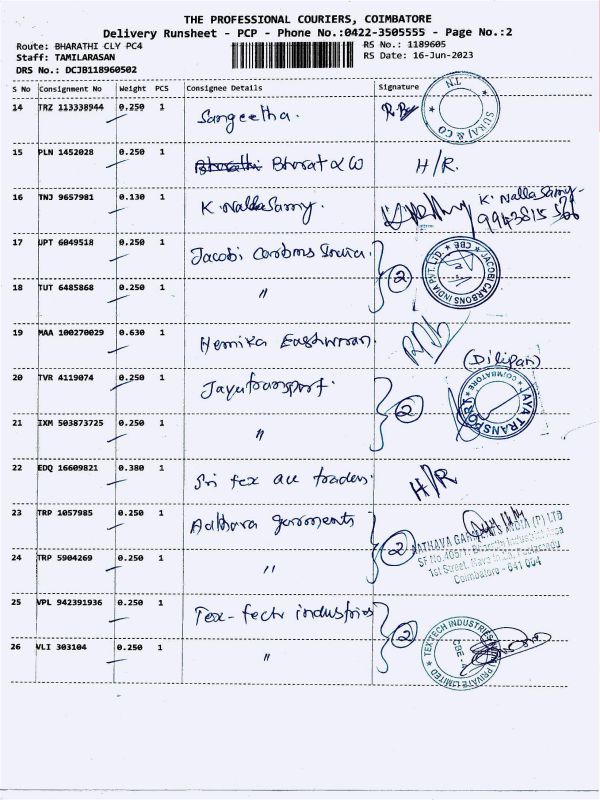 THE PROFESSIONAL COURIERS, COIMBATORE
Delivery Runsheet - PCP - Phone No.:0422-3505555 - Page No.:2
Route: BHARATHI CLY PC4
RS No.: 1189605
Staff: TAMILARASAN
RS Date: 16-Jun-2023
DRS No.: DCJB118960502
S No Consignment No Weight PCS Consignee Details Signature
14 TRZ 113338944 0.250 1 Sangeetha.
SURAJ & CO TN
15 PLN 1452028 0.250 1 Bharathi Bharat & co H/R.
16 TNJ 9657981 0.130 1 K. Nalla Samy. K. Nalla Samy.
17 UPT 6049518 0.250 1 Jacobi Carbons 2
JACOBI CARBONS INDIA PVT. LTD. CBE
18 TUT 6485868 0.250 1 "
19 MAA 100270029 0.630 1 Hemika
(Dilipan)
20 TVR 4119074 0.250 1 Jaya transport. 2
JAYA TRANSPORT COIMBATORE
21 IXM 503873725 0.250 1 "
22 EDQ 16609821 0.380 1 Sri tex acc traders. H/R
23 TRP 1057985 0.250 1 Aathava garments 2
AATHAVA GARMENTS INDIA (P) LTD
SF No.405/1, Bharathi Industrial Area
1st Street,
Coimbatore - 641 004
24 TRP 5904269 0.250 1 "
25 VPL 942391936 0.250 1 Tex-tech industries 2
TEXTECH INDUSTRIES INDIA PRIVATE LIMITED CBE-4
26 VLI 303104 0.250 1 "